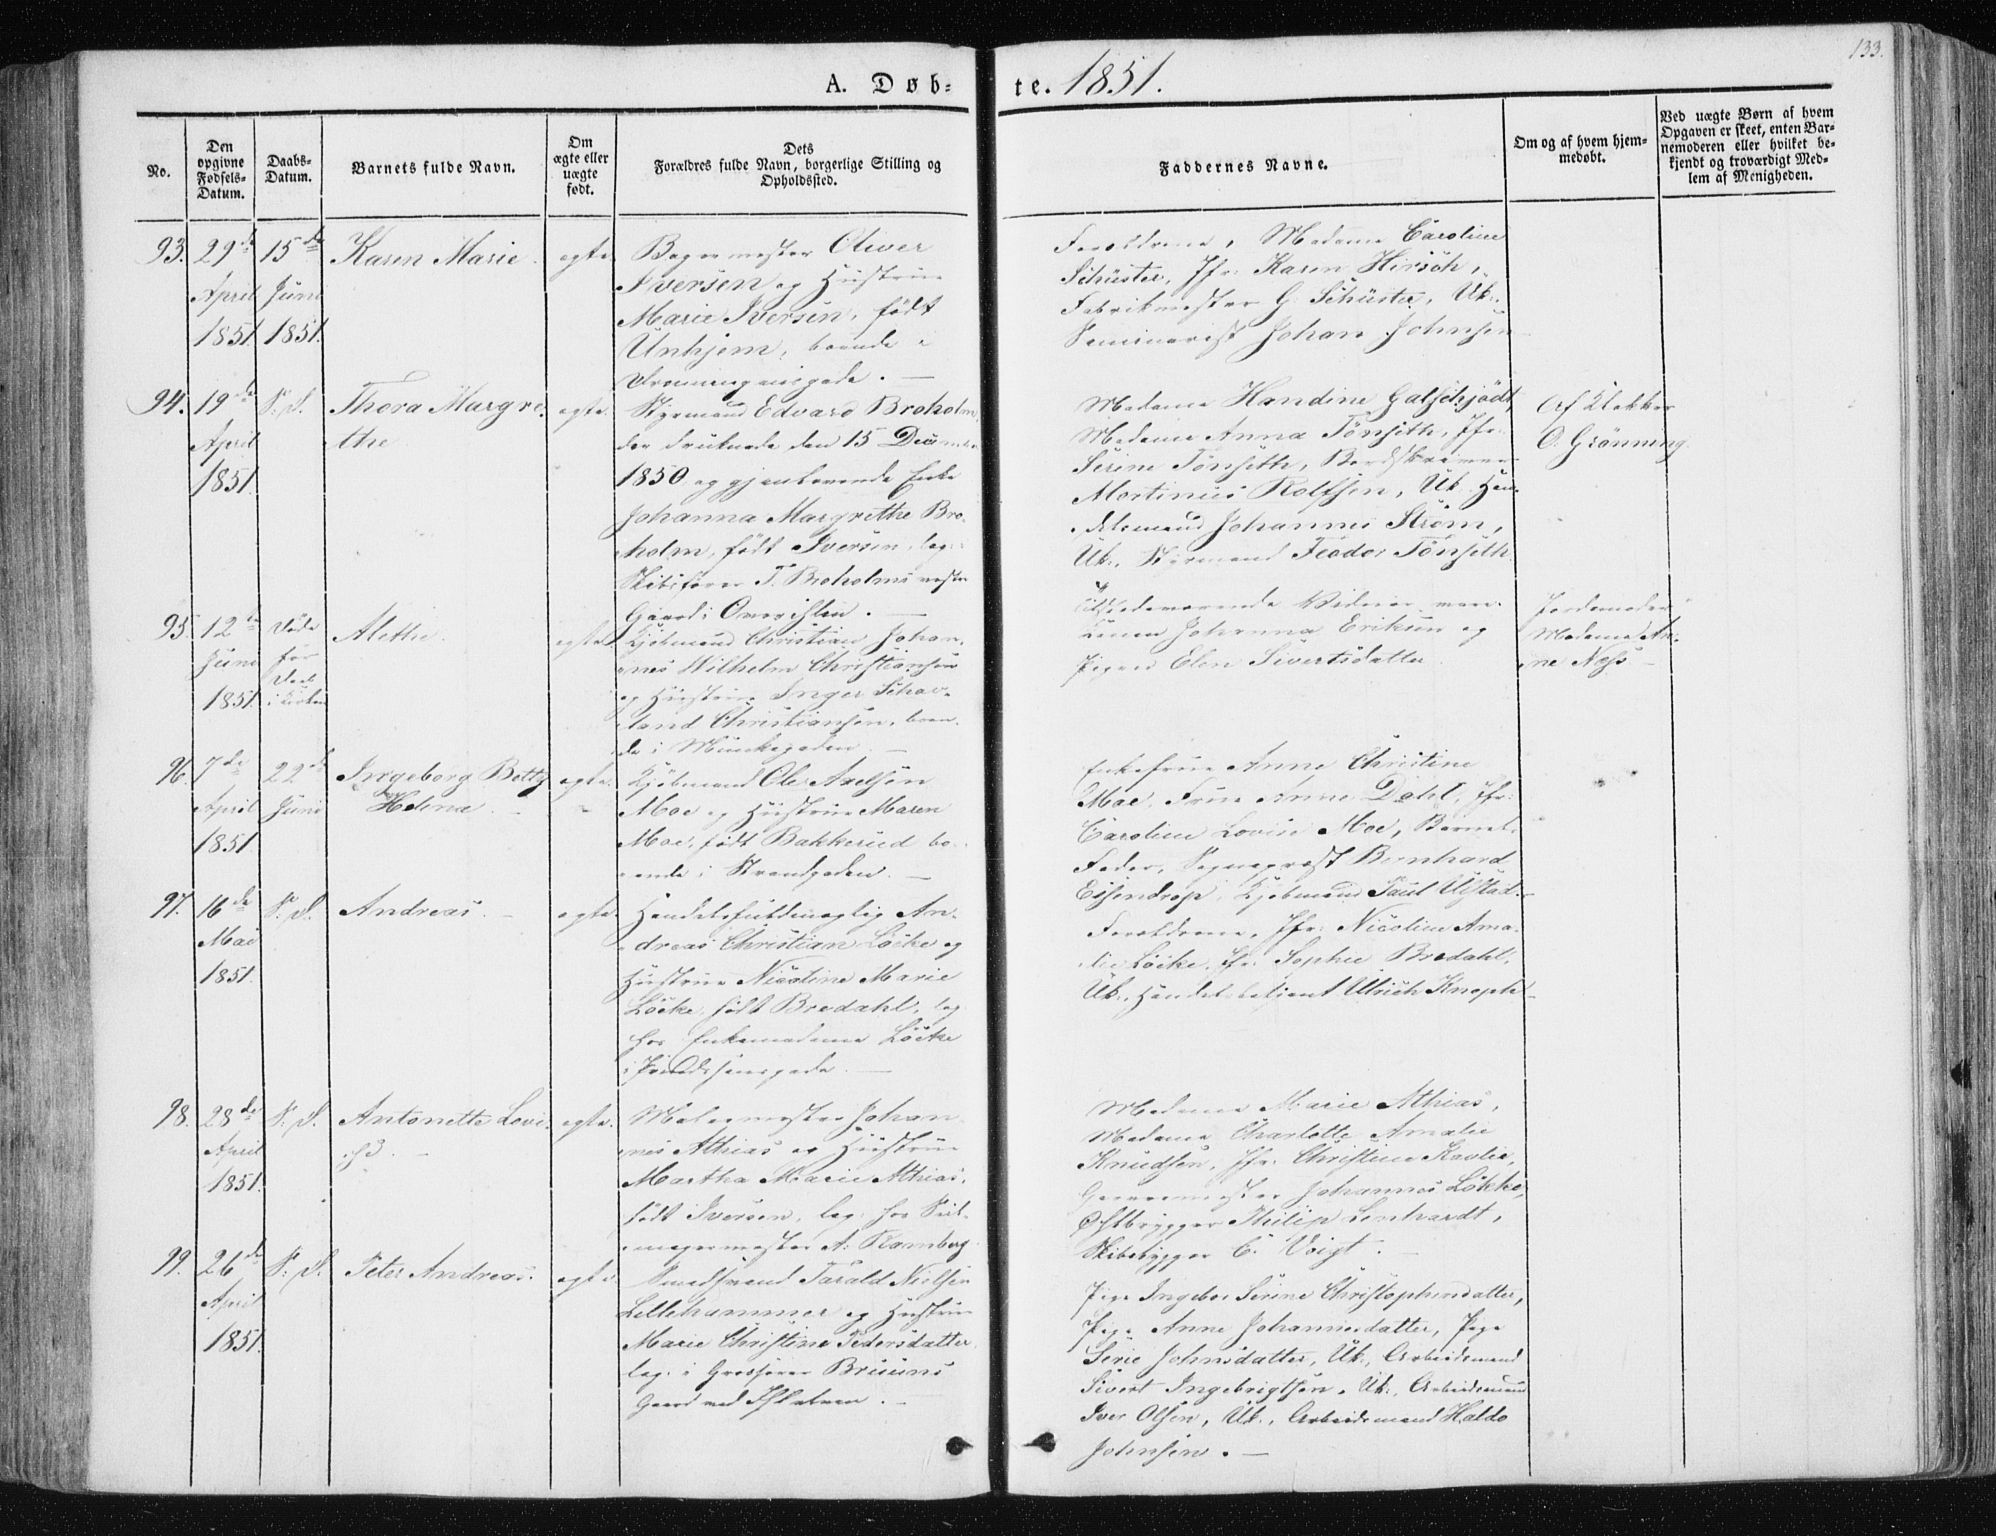 133.
A. Døb- te. 1851.
No.
Den
opgivne
Fødsels-
Datum.
Daabs-
Datum.
Barnets fulde Navn.
Om
ægte eller
uægte
født.
Dets
Forældres fulde Navn, borgerlige Stilling og
Opholdssted.
Faddernes Navne.
Om og af hvem hjem-
medøbt.
Ved uægte Børn af hvem
Opgaven er skeet, enten Bar-
nemoderen eller hvilket be-
kjendt og troværdigt Med-
lem af Menigheden.
93.
29de
April
1851
15de
Juni
1851.
Karen Marie.
ægte
Bagermester Oliver
Iversen og Hustrue
Marie Iversen, født
Unhjem, boende i
Dronningensgade. —
Forældrene, Madame Caroline
Schüster, Jfr: Karen Hirsch,
Fabrikmester G. Schüster, Uk:,
Seminarist Johan Johnsen
94.
19de
April
1851.
S: D.
Thora Margre-
the
ægte.
Styrmand Edvard Broholm,
der druknede den 15 December
1850 og gjenlevende Enke
Johanna Margrethe Bro-
holm, født Iversen, log:
Skibsfører T. Broholms
Gaard i
Madame Handine Galschjødt,
Madame Anna Tønseth, Jfr:
Serine Tønseth,
Martinus Rolfsen, Uk: Han-
delsmand Johannes Strøm,
Uk:, Styrmand Feodor Tønseth.
Af Klokker
O. Grønning.
95.
12te
Juni
1851.
Døde
før
Daab
i Kirken
Alethe
ægte
Kjøbmand Christian Johan-
nes Wilhelm Christiansen
og Hustrue Inger
Christiansen, boen-
de i Munkegaden. —
Johanna Eriksen og
Pigen Elen Sivertsdatter
Jordemoder
Madame An-
ne Næss —
96.
7de
April
1851
22de
Juni
Ingeborg Betty
Helena.
ægte.
Kjøbmand Ole Axelsen
Moe og Hustrue Maren
Moe, født Bakkerud bo-
ende i Strandgaden. —
Enkefrue Anne Christine
Moe, Frue Anne Dahl, Jfr:
Caroline Lovise Moe, Barnets
Fader, Sognepræst Bernhard
Eisendrop, Kjøbmand Paul Ulstad.
97.
16de
Mai
1851.
S: D.
Andreas. —
ægte.
Handelsfuldmægtig An-
dreas Christian Løcke og
Hustrue Nicoline Marie
Løcke, født Bredahl, log
hos Enkemadame Løcke
i
Forældrene, Jfr: Nicoline Ama-
lie Løcke, Jfr: Sophie Bredahl,
Uk:, Handelsbetjent Ulrich
98.
28de
April
1851.
S: D.
Antonette Lovi-
se. —
ægte.
Malermester Johan-
nes Athias og Hustrue
Martha Marie Athias,
født Iversen, log: hos Seil-
magermester A: Ramberg
Madame Marie Athias,
Madame Charlotte Amalie
Knudsen, Jfr: Christine
Garvermester Johannes Løkke,
Ølbrygger Philip Lenhardt,
Skibsbygger C. Voigt. —
99.
26de
April
1851.
S: D.
Peter Andreas.
ægte.
Svendsmand Tarald Nielsen
Lillehammer og Hustrue
Marie Christine Pedersdatter,
log: i Grosserer Bruuns
Gaard ved Ihlebroen. —
Pige Ingebor Serine Christophersdatter,
Pige Anne Johannesdatter, Pige
Serie Johnsdatter, Uk:, Arbeidsmand
Sivert Ingebrigtsen, Uk:, Arbeidsmand
Iver Olsen, Uk:, Arbeidsmand Haldo
Johnsen. —